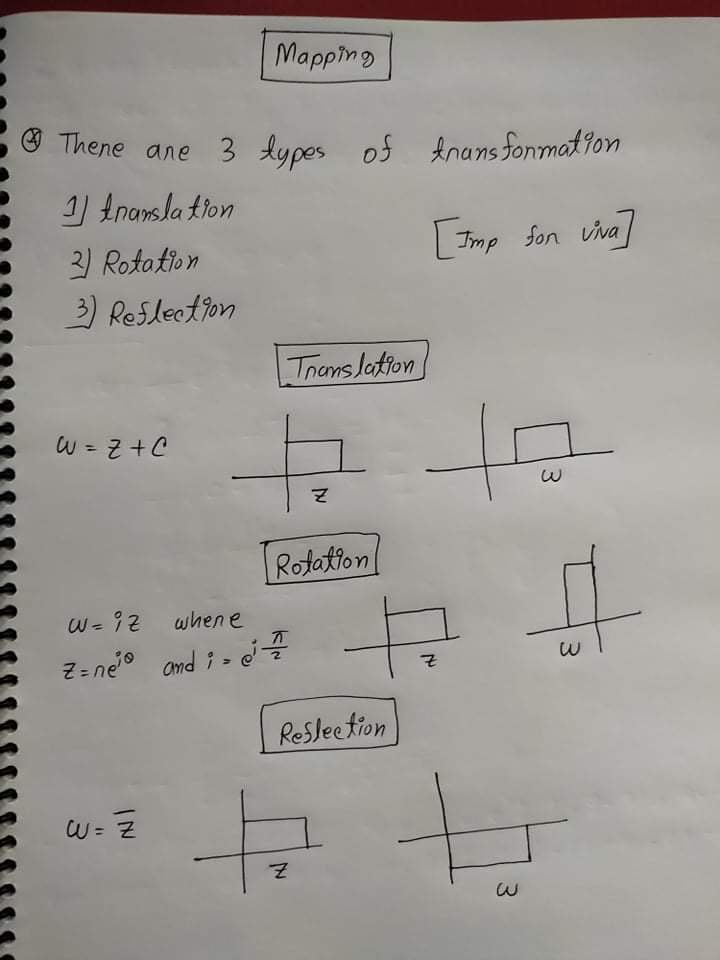 Mapping
There are 3 types of transformation
1) translation
[Imp for viva]
2) Rotation
3) Reflection
Translation
w = z + c
z
w
Rotation
w = iz where
z = re^{iθ} and i = e^{i π/2}
z
w
Reflection
w = z̅
z
w